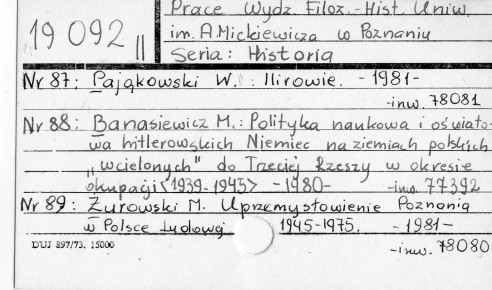 Prace Wydz. Filoz.-Hist. Uniw.
19 092 II
im. A. Mickiewicza w Poznaniu
Seria: Historia
Nr 87: Pająkowski W.: Ilirowie. -1981-
-inw. 78081
Nr 88: Banasiewicz M.: Polityka naukowa i oświato-
wa hitlerowskich Niemiec na ziemiach polskich
"wcielonych" do Trzeciej Rzeszy w okresie
okupacji <1939-1945> -1980- -inw. 77392
Nr 89: Żurowski M. Uprzemysłowienie Poznania
w Polsce Ludowej 1945-1975. -1981-
DUJ 897/73. 15000
-inw. 78080